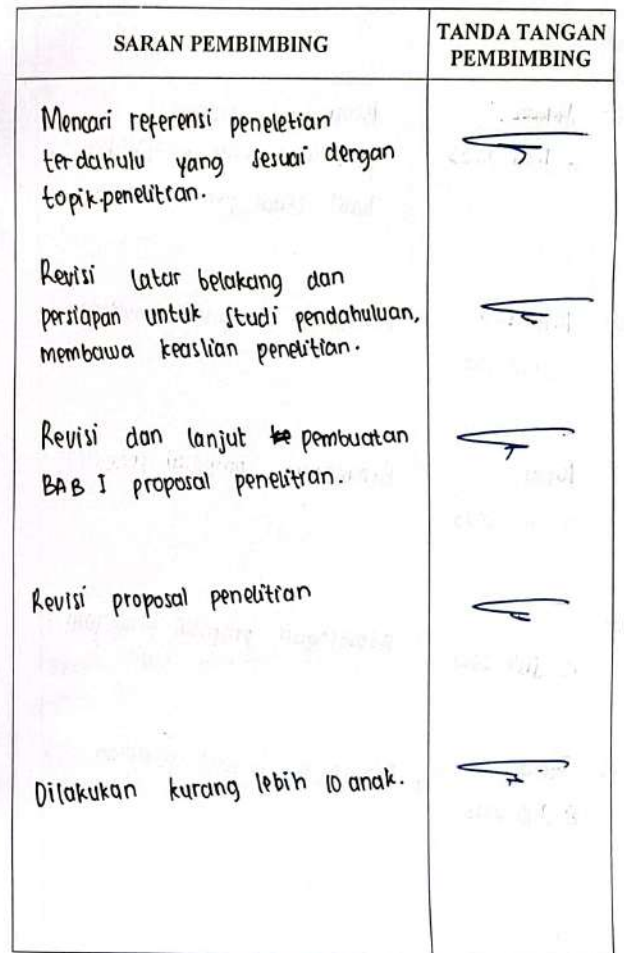 SARAN PEMBIMBING
TANDA TANGAN
PEMBIMBING
Mencari referensi peneletian
terdahulu yang sesuai dengan
topik penelitian.
Revisi latar belakang dan
persiapan untuk studi pendahuluan,
membawa keaslian penelitian.
Revisi dan lanjut ke pembuatan
BAB I proposal penelitian.
Revisi proposal penelitian
Dilakukan kurang lebih 10 anak.